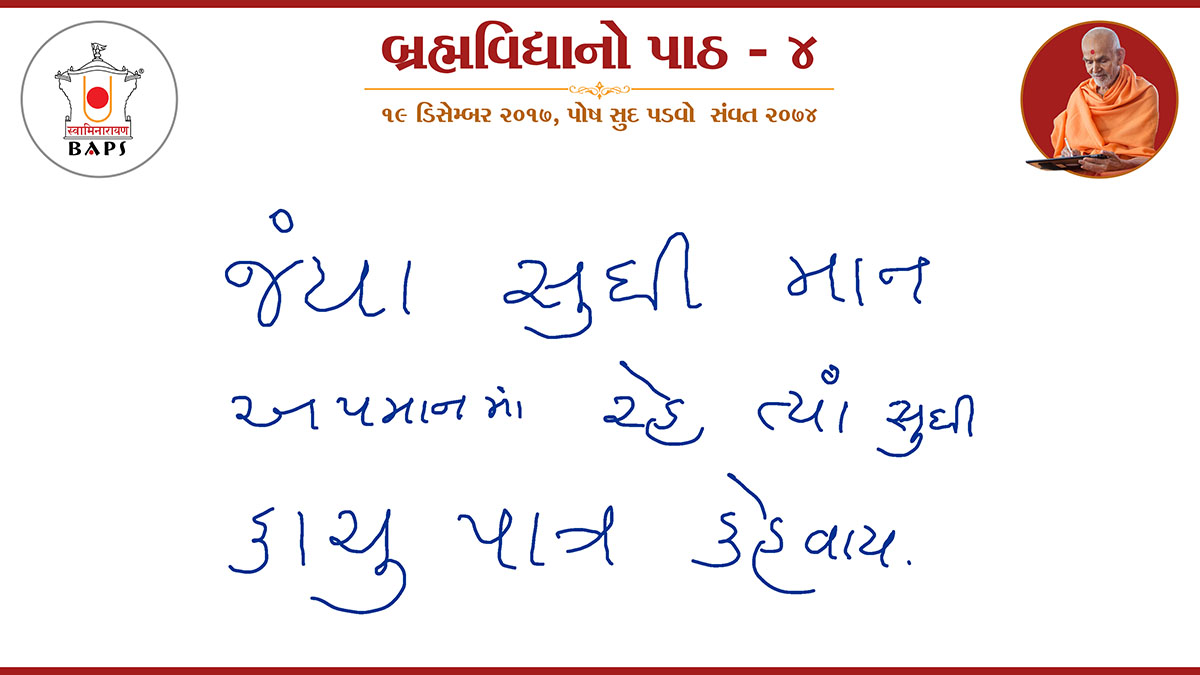 બ્રહ્મવિદ્યાનો પાઠ - ૪
૧૯ ડિસેમ્બર ૨૦૧૭, પોષ સુદ પડવો સંવત ૨૦૭૪
स्वामिनारायण
BAPS
જંયા સુધી માન
અપમાનમાં રહે ત્યાં સુધી
કાચુ પાત્ર કહેવાય.